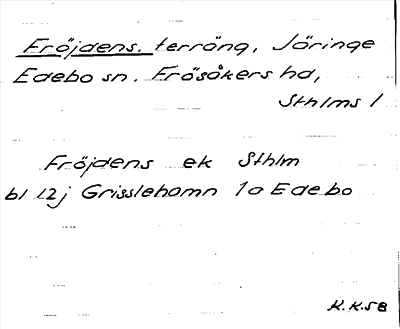 Fröjdens, terräng, Jöringe
Edebo sn. Frösåkers hd,
Sthlms l
Fröjdens ek Sthlm
bl 12j Grisslehamn 1a Edebo
K.K.58